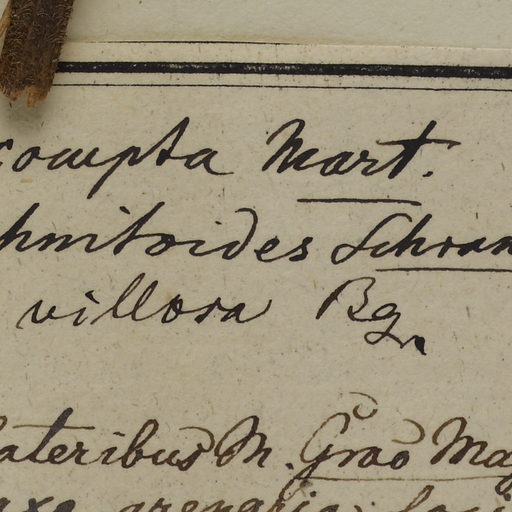 compta Mart.
phmitoides Schran
villosa Bg
lateribus M. Grao Mag
axo arenaria loci